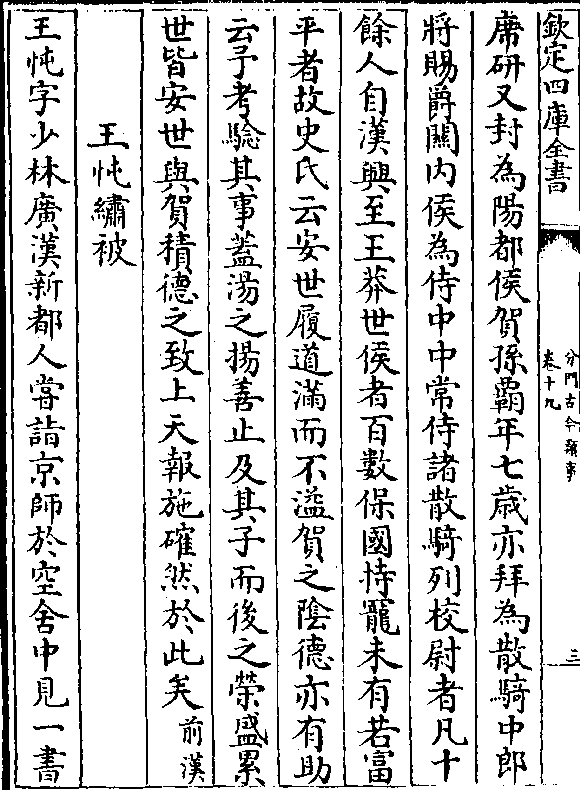 欽定四庫全書
分門古今類事
卷十九
三
席研又封為陽都侯賀孫霸年七歲亦拜為散騎中郎
將賜爵關内侯為侍中中常侍諸散騎列校尉者凡十
餘人自漢興至王莽世侯者百數保國恃寵未有若富
平者故史氏云安世履道滿而不溢賀之陰德亦有助
云予考驗其事蓋湯之揚善止及其子而後之榮盛累
世皆安世與賀積德之致上天報施確然於此矣前漢
王忳繡被
王忳字少林廣漢新都人嘗詣京師於空舍中見一書